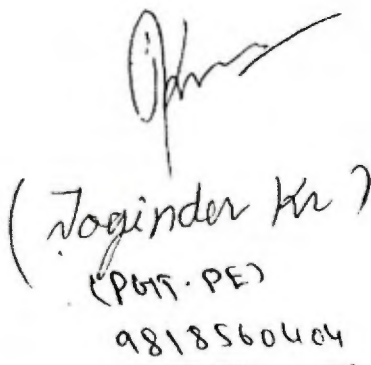 (Joginder Kr)
(PGT. PE)
9818560404